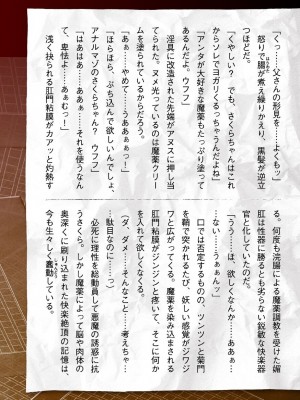 「くっ……父さんの形見を……よくもッ」
怒りで腸が煮え繰りかえり、黒髪が逆立
つほどだ。
「くやしい? でも、さくらちゃんはこれ
からソレでヨガリくるっちゃうんだよね」
「アンタが大好きな魔薬もたっぷり塗って
あるんだよォ、ウフフ」
淫具に改造された先端がアヌスに押し当
てられた。ヌメ光っているのは魔薬クリー
ムを塗られているからだろう。
「あぁ……やめて……うああぁぁっ!」
「ほらほら、ぶち込んで欲しいんでしょ、
アナルマゾのさくらちゃん? ウフフ」
「はあはあ……ああぁ……それを使うなん
て、卑怯よ……あぁむっ!」
浅く抉られる肛門粘膜がカアッと灼熱す
る。何度も浣腸による魔薬調教を受けた媚
肛は性器に勝るとも劣らない鋭敏な快楽器
官と化していたのだ。
「うう……は、欲しくなんか……ああぁ…
ない……うぁぁんッ」
口では否定するものの、ツンツンと菊門
を鞘で突かれるたび、妖しい感覚がジワジ
ワと広がってくる。魔薬を染み込まされる
肛門粘膜がジンジンと疼いて、そこに何か
を入れて欲しくなくなる。
(ダ、ダメ……そんなこと……考えちゃ…
駄目なのに……っ)
必死に理性を総動員して悪魔の誘惑に抗
うさくら。しかし魔薬によって脳や肉体の
奥深くに刷り込まれた快楽絶頂の記憶は、
今も生々しく蠢動している。